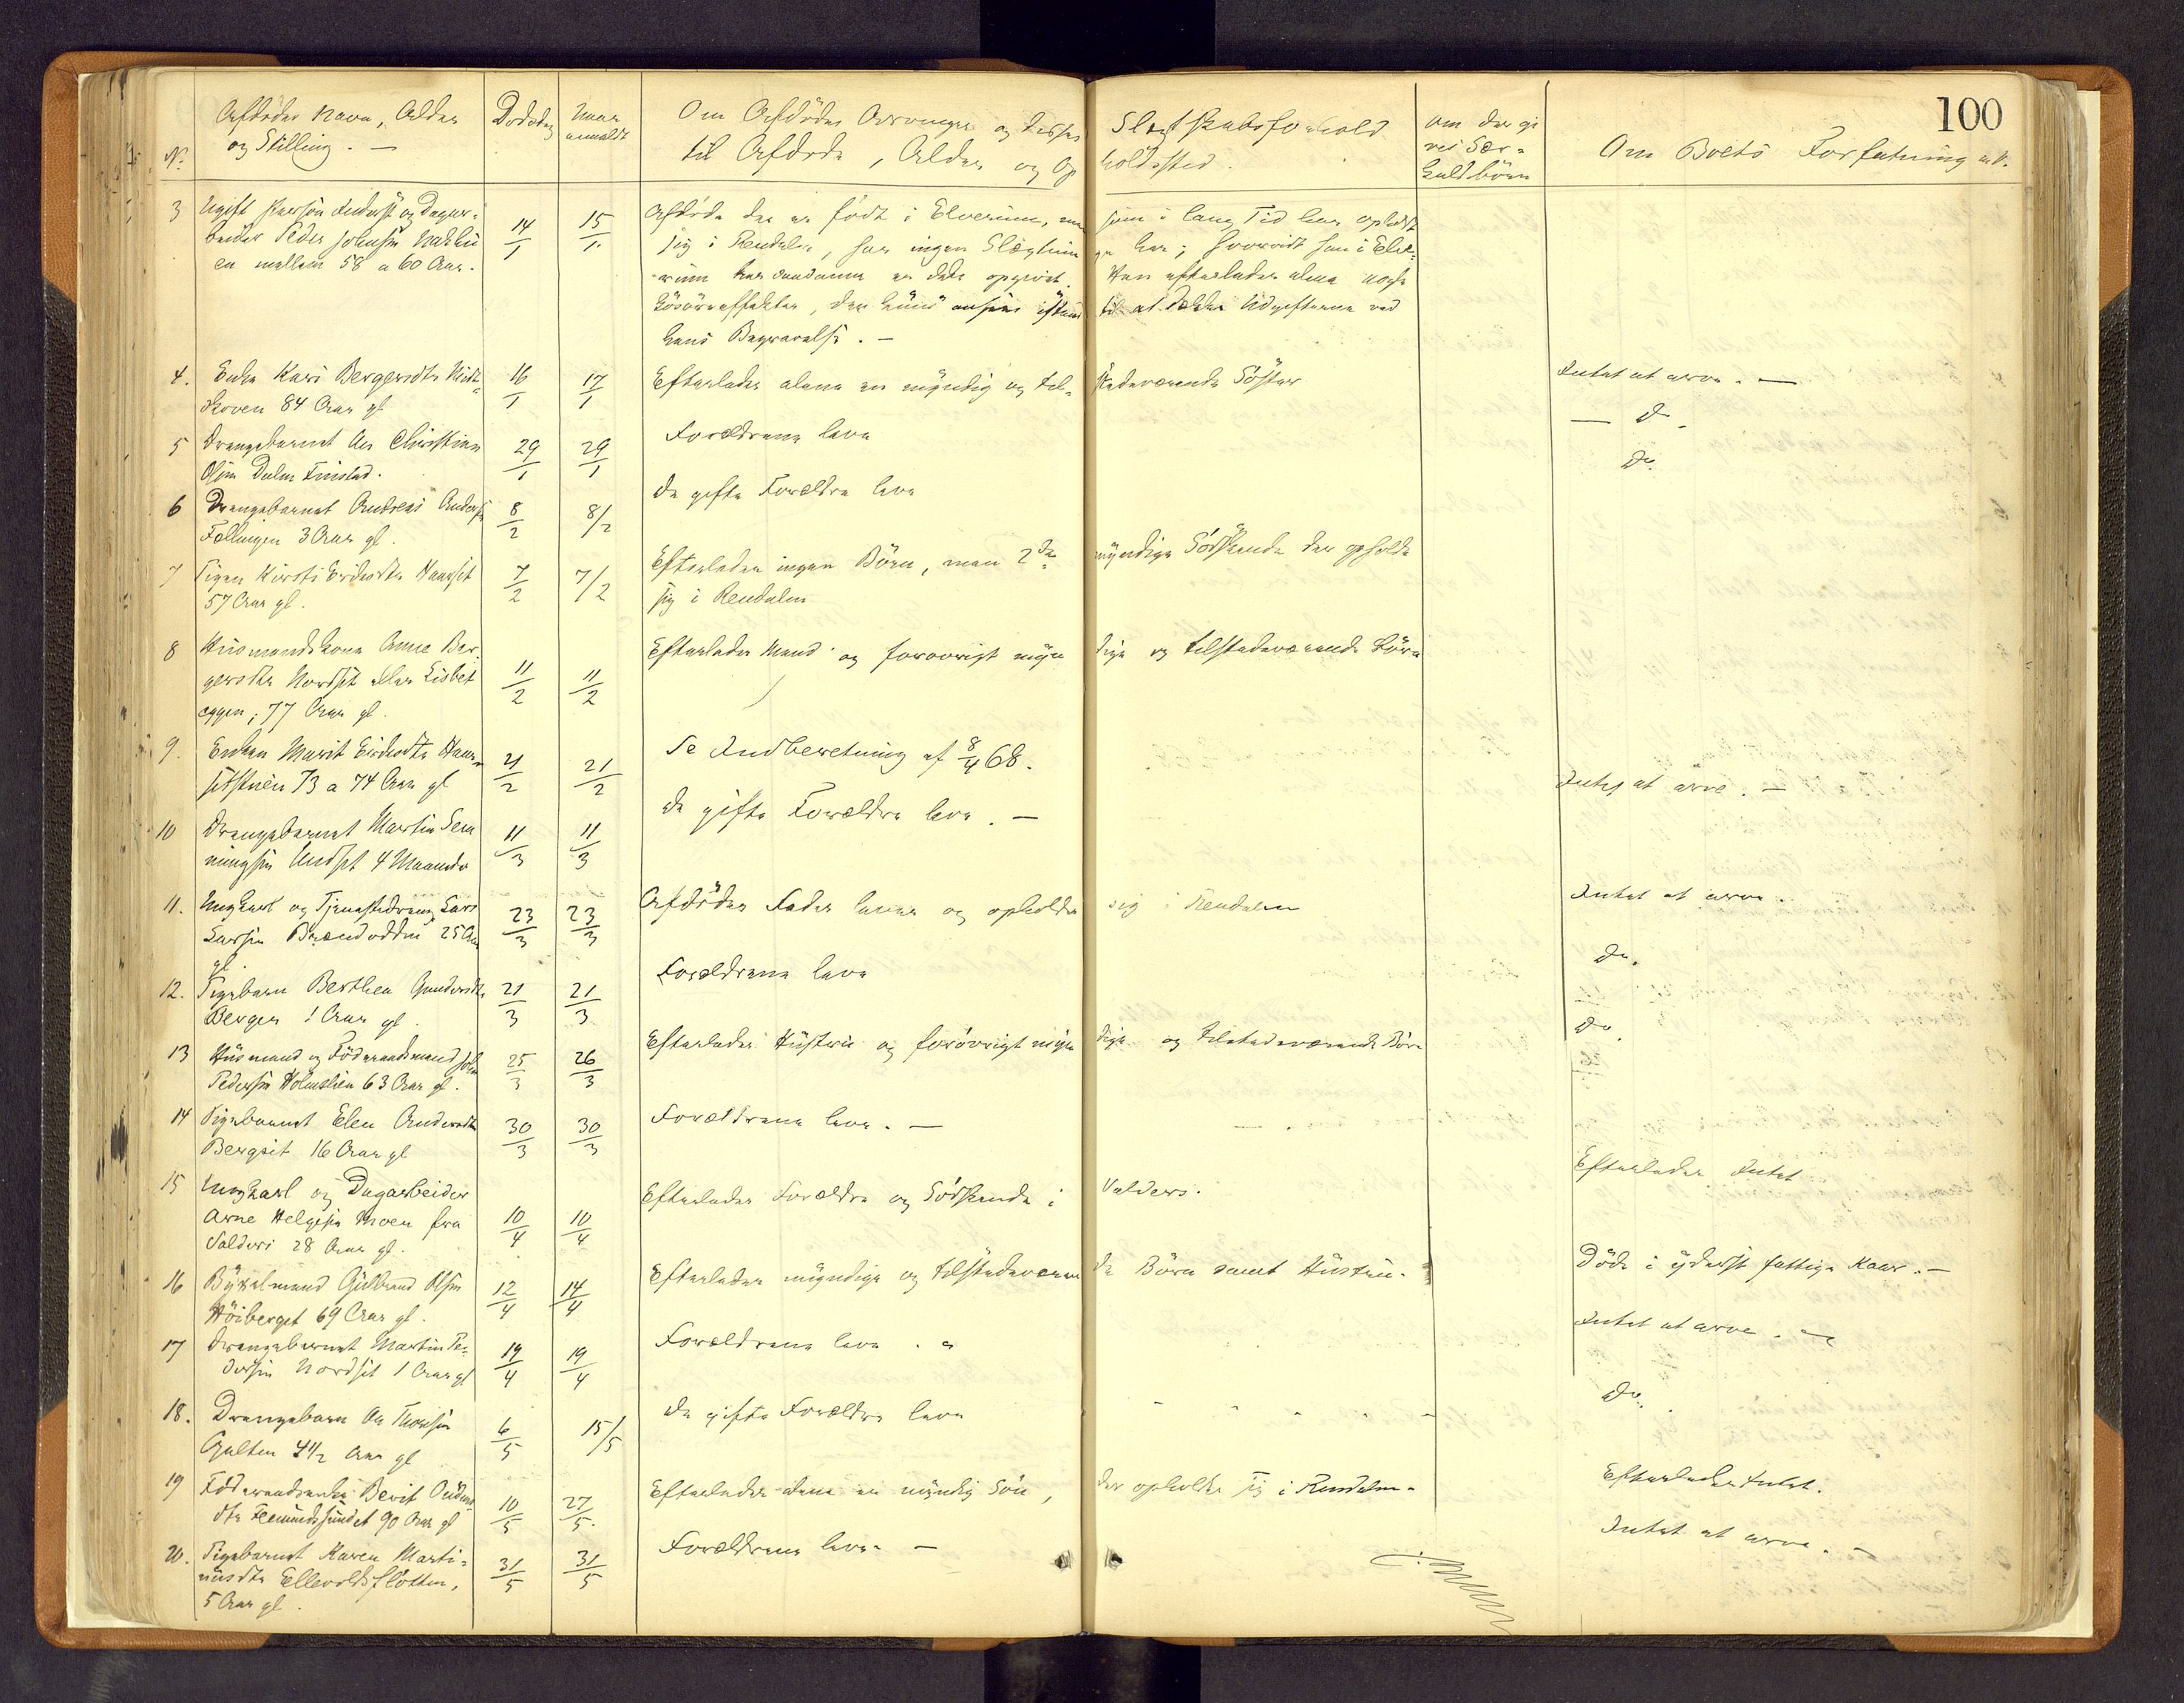 100
No. Afdödes Navn, Alder
og Stilling. —
Dödsdag
Naar
anmeldt
Om Afdödes Arvinger og disses Slægtskabsforhold
til Afdøde, Alder og Opholdssted.
Om der gi
ves Sær-
kuldbörn
Om Boets Forfatning m.V.
3 Ugift Person Inderst og Dagar-
beider Peder Johnsen
en mellem 58 a 60 Aar.
14/1
15/1
Afdöde der er født i Elverum, men som i lang Tid har opholdt
sig i Rendalen, har ingen Slægtninge her; hvorvidt han i Elve-
rum har saadanne er ikke opgivet. Han efterlader alene nogle
til at dække Udgifterne ved
hans Begravelse. —
4. Enke Kari Bergersdtr
skoven 84 Aar gl
16/1
17/1
Efterlader alene en myndig og tilstedeværende Söster
Intet at arve. —
5 Drengebarnet Christian
Olsen Finstad.
29/1
29/1
Forældrene leve
— Do.
6 Drengebarnet Andreas Anders
Fællingen 3 Aar gl.
8/2
8/2
De gifte Forældre leve
Do.
7 Pigen Kirsti Haarset
57 Aar gl.
7/2
7/2
Efterlader ingen Börn, men 2de myndige Södskende der opholde
sig i Rendalen
8 Husmandskone Anne Ber-
gersdtr Nordset eller Lisbet
eggen, 77 Aar gl.
11/2
11/2
Efterlader Mand og forövrigt myndige og tilstedeværende Börn
9. Enken Marit
73 a 74 Aar gl
21/2
21/2
Se Indberetning af 8/4 68.
10 Drengebarnet Martin Sem
mingsen Undset 4 Maaneder
11/3
11/3
De gifte Forældre leve. —
Intet at arve. —
11. Ungkarl og Tjenestedreng Lars
Larsen Brændodden 25 Aar
gl.
23/3
23/3
Afdödes Fader lever og opholder sig i Rendalen
Intet at arve.
12. Pigebarn Berthea Gundersdtr
Berger 1 Aar gl.
21/3
21/3
Forældrene leve
Do.
13 Husmand og Föderaadsmand John
Pedersen Holmslien 63 Aar gl.
25/3
26/3
Efterlader Hustru og forövrigt myndige og tilstedeværende Börn
Do.
14 Pigebarnet Elen Andersdtr
Bergset 16 Aar gl
30/3
30/3
Forældrene leve. —
15 Ungkarl og Dagarbeider
Arne Helgesen Moen fra
Valders 28 Aar gl.
10/4
10/4
Efterlader Forældre og Södskende i Valders.
Efterlader Intet
16 Bygselmand Gulbrand Olsen
Höiberget 69 Aar gl.
12/4
14/4
Efterlader myndige og tilstedeværende Börn samt Hustru.
Döde i yderst fattige Kaar. —
17 Drengebarnet Martin Pe-
dersen Nordset 1 Aar gl
19/4
19/4
Forældrene leve.
Intet at arve. —
18. Drengebarn Ole Thorsen
Galten 4 1/2 Aar gl
6/5
15/5
De gifte Forældre leve
Do.
19 Föderaadsenke Berit
Femundssundet 90 Aar gl
10/5
27/5.
Efterlader alene en myndig Sön, der opholder sig i Rendalen.
Efterlader Intet.
20. Pigebarnet Karen Marti-
nusdtr Ellevoldsfløtten,
5 Aar gl.
31/5
31/5
Forældrene leve. —
Intet at arve. —